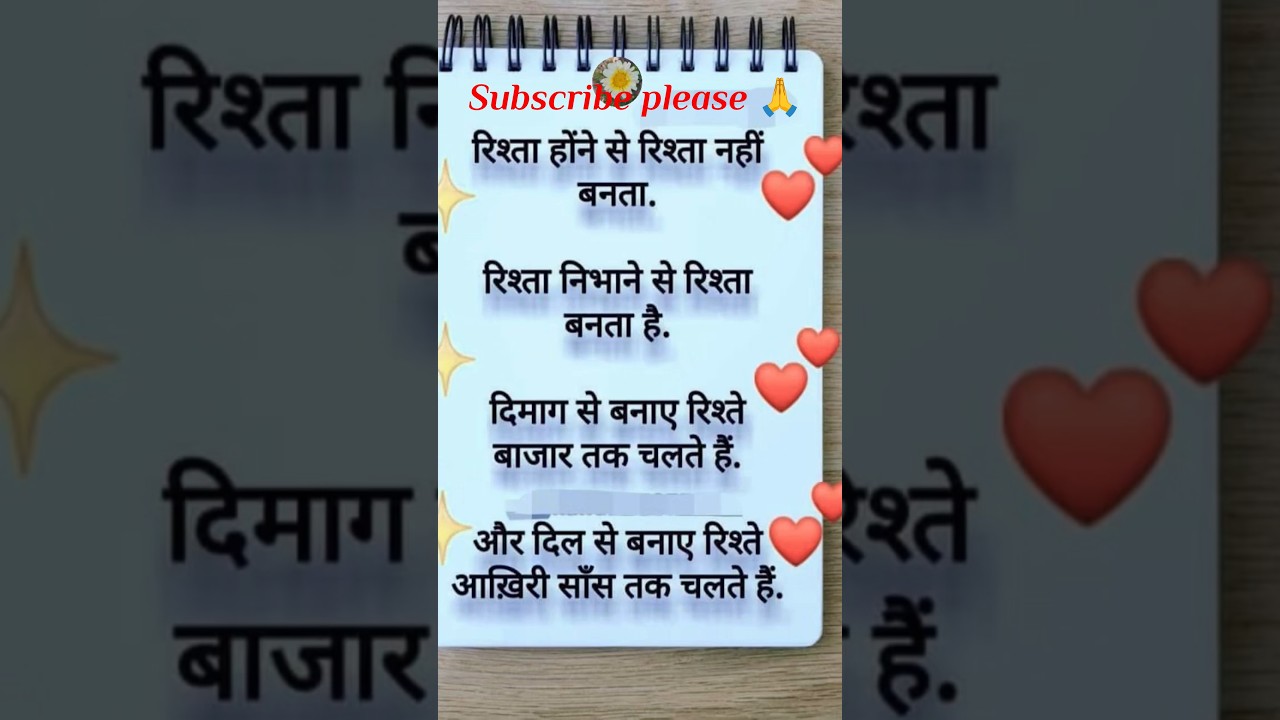 Subscribe please 🙏
रिश्ता होंने से रिश्ता नहीं
बनता.
रिश्ता निभाने से रिश्ता
बनता है.
दिमाग से बनाए रिश्ते
बाजार तक चलते हैं.
और दिल से बनाए रिश्ते
आख़िरी साँस तक चलते हैं.